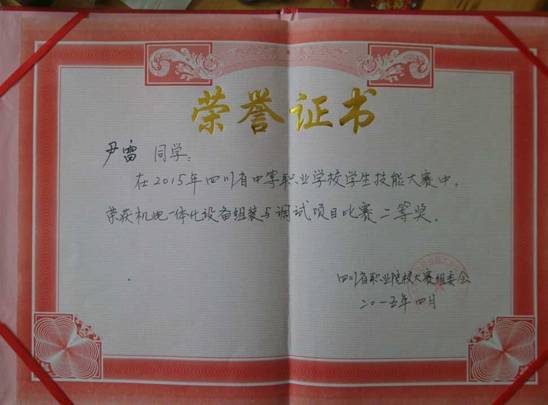 荣誉证书
尹雷 同学:
在2015年四川省中等职业学校学生技能大赛中,
荣获机电一体化设备组装与调试项目比赛二等奖。
四川省职业院校大赛组委会
二〇一五年四月